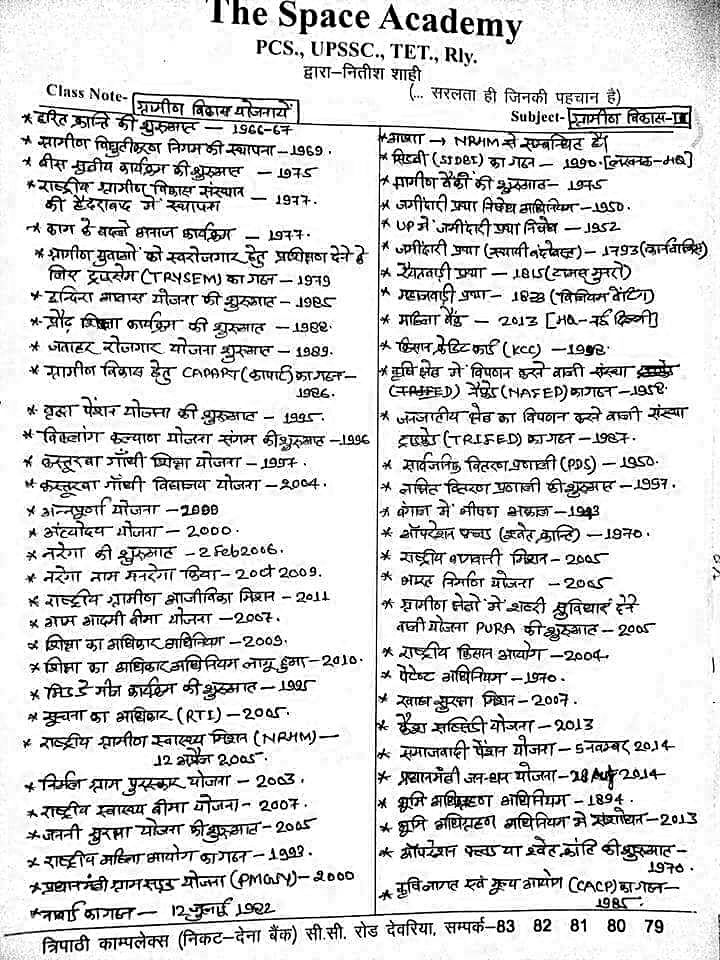 The Space Academy
PCS., UPSSC., TET., Rly.
द्वारा-नितीश शाही
(... सरलता ही जिनकी पहचान है)
Class Note- ग्रामीण विकास योजनायें
Subject- ग्रामीण विकास-II
* हरित क्रान्ति की शुरूआत — 1966-67
* ग्रामीण विधुतीकरण निगम की स्थापना -1969.
* बीस सूत्रीय कार्यक्रम की शुरूआत — 1975
* राष्ट्रीय ग्रामीण विकास संस्थान
की हैदराबाद में स्थापना — 1977.
* काम के बदले अनाज कार्यक्रम — 1977.
* ग्रामीण युवाओं को स्वरोजगार हेतु प्रशिक्षण देने के
लिए ट्राइसेम (TRYSEM) का गठन -1979
* इन्दिरा आवास योजना की शुरूआत - 1985
* प्रौढ़ शिक्षा कार्यक्रम की शुरूआत - 1988.
* जवाहर रोजगार योजना शुरूआत - 1989.
* ग्रामीण विकास हेतु CAPART (कापार्ट) का गठन-
1986.
* वृद्धा पेंशन योजना की शुरूआत - 1995.
* विकलांग कल्याण योजना संगम की शुरूआत -1996
* कस्तूरबा गाँधी शिक्षा योजना - 1997.
* कस्तूरबा गाँधी विद्यालय योजना - 2004.
* अन्नपूर्णा योजना -2000
* अंत्योदय योजना - 2000.
* नरेगा की शुरूआत - 2 Feb 2006.
* नरेगा नाम मनरेगा किया - 2 Oct 2009.
* राष्ट्रीय ग्रामीण आजीविका मिशन - 2011
* आम आदमी बीमा योजना - 2007.
* शिक्षा का अधिकार अधिनियम - 2009.
* शिक्षा का अधिकार अधिनियम लागू हुआ - 2010.
* मिड डे मील कार्यक्रम की शुरूआत - 1995
* सूचना का अधिकार (RTI) - 2005.
* राष्ट्रीय ग्रामीण स्वास्थ्य मिशन (NRHM) —
12 अप्रैल 2005.
* निर्मल ग्राम पुरस्कार योजना - 2003.
* राष्ट्रीय स्वास्थ्य बीमा योजना - 2007.
* जननी सुरक्षा योजना की शुरूआत - 2005
* राष्ट्रीय महिला आयोग का गठन - 1993.
* प्रधानमंत्री ग्राम सड़क योजना (PMGSY) - 2000
* नाबार्ड का गठन — 12 जुलाई 1982
* आशा → NRHM से सम्बन्धित है।
* सिडबी (SIDBI) का गठन - 1990. [लखनऊ-HQ]
* ग्रामीण बैंकों की शुरूआत - 1975
* जमींदारी प्रथा निषेध अधिनियम - 1950.
* UP में जमींदारी प्रथा निषेध - 1952
* जमींदारी प्रथा (स्थायी बंदोबस्त) - 1793 (कार्नवालिस)
* रैयतवाड़ी प्रथा - 1815 (टामस मुनरो)
* महालवाड़ी प्रथा - 1833 (विलियम बेंटिंग)
* महिला बैंक - 2013 [HQ - नई दिल्ली]
* किसान क्रेडिट कार्ड (KCC) - 1998.
* कृषि क्षेत्र में विपणन करने वाली संस्था
(TRIFED) नैफेड (NAFED) का गठन - 1958.
* जनजातीय क्षेत्र का विपणन करने वाली संस्था
ट्राइफेड (TRIFED) का गठन - 1987.
* सार्वजनिक वितरण प्रणाली (PDS) - 1950.
* लक्षित वितरण प्रणाली की शुरूआत - 1997.
* बंगाल में भीषण अकाल - 1943
* ऑपरेशन फ्लड (श्वेत क्रान्ति) - 1970.
* राष्ट्रीय बागवानी मिशन - 2005
* भारत निर्माण योजना - 2005
* ग्रामीण क्षेत्रों में शहरी सुविधाएं देने
वाली योजना PURA की शुरूआत - 2005
* राष्ट्रीय किसान आयोग - 2004.
* पेटेंट अधिनियम - 1970.
* खाद्य सुरक्षा मिशन - 2007.
* कैश सब्सिडी योजना - 2013
* समाजवादी पेंशन योजना - 5 नवम्बर 2014
* प्रधानमंत्री जन-धन योजना - 28 Aug 2014
* भूमि अधिग्रहण अधिनियम - 1894.
* भूमि अधिग्रहण अधिनियम में संशोधन - 2013
* ऑपरेशन फ्लड या श्वेत क्रांति की शुरूआत -
1970.
* कृषि लागत एवं मूल्य आयोग (CACP) का गठन -
1985.
त्रिपाठी काम्पलेक्स (निकट-देना बैंक) सी.सी. रोड देवरिया, सम्पर्क-83 82 81 80 79